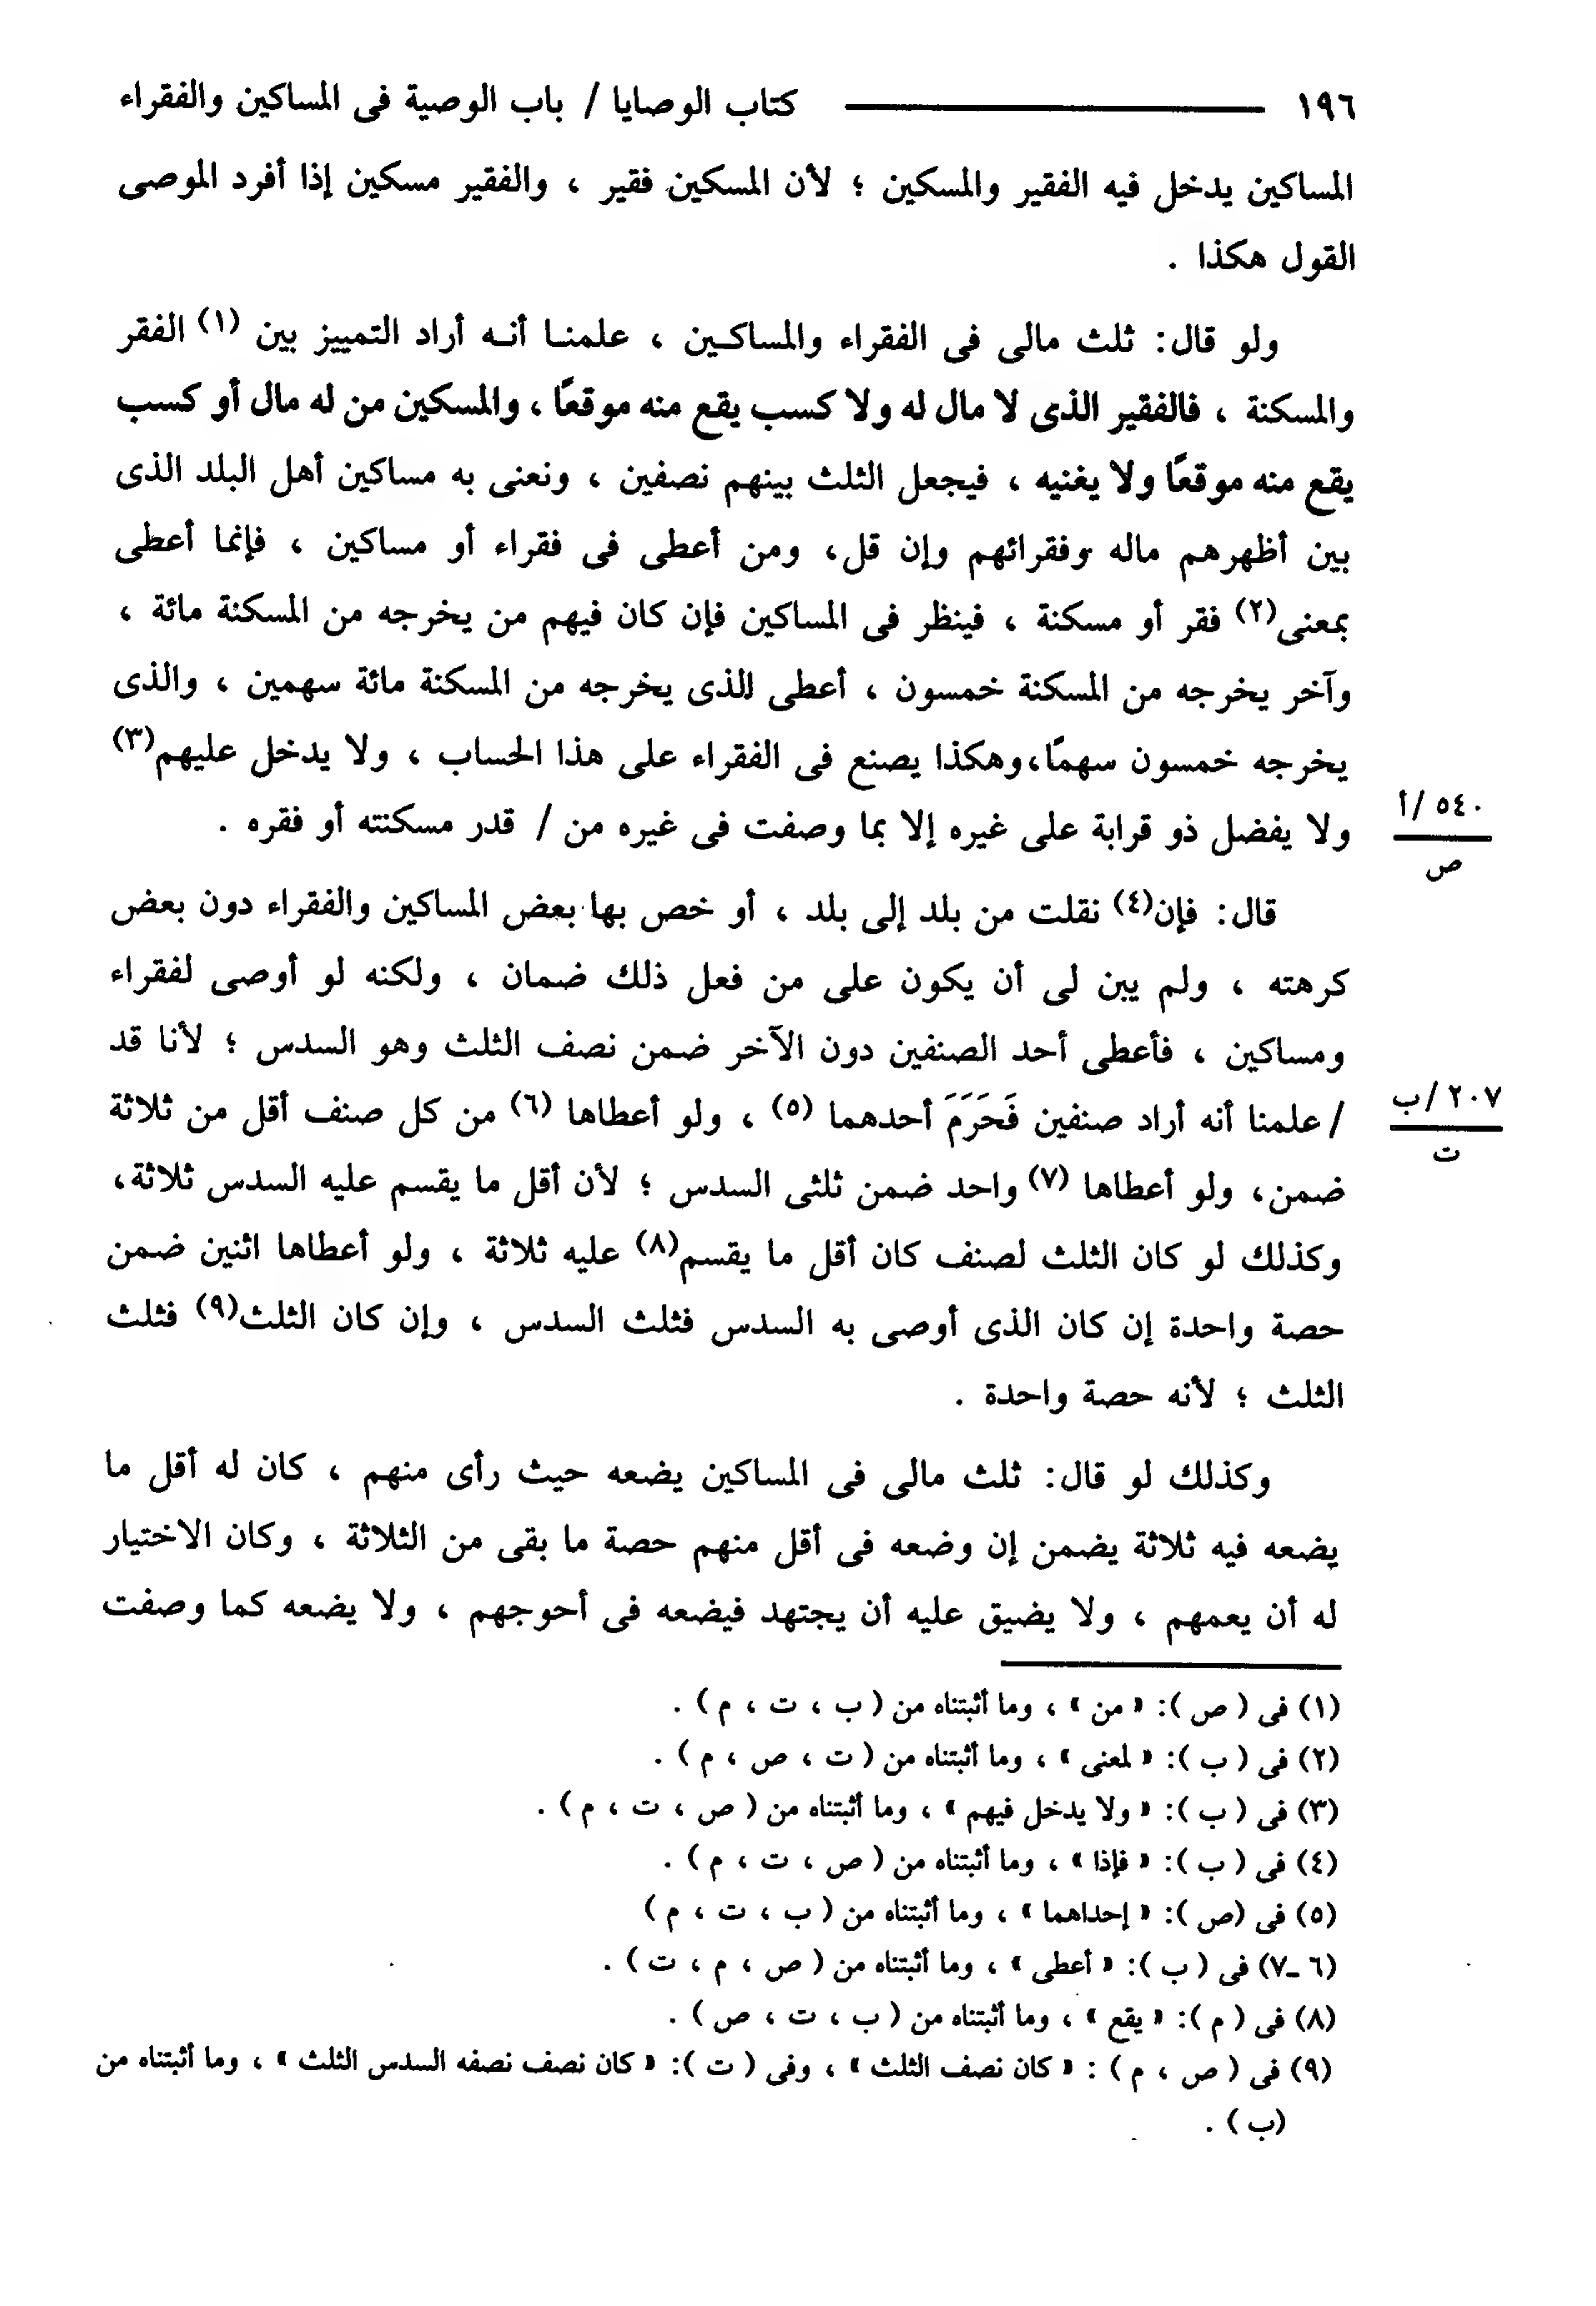 ١٩٦ ــــــــــــــــــــ كتاب الوصايا / باب الوصية فى المساكين والفقراء
المساكين يدخل فيه الفقير والمسكين ؛ لأن المسكين فقير ، والفقير مسكين إذا أفرد الموصى
القول هكذا .
ولو قال: ثلث مالى فى الفقراء والمساكـين ، علمنـا أنـه أراد التمييز بين (١) الفقر
والمسكنة ، فالفقير الذى لا مال له ولا كسب يقع منه موقعًا ، والمسكين من له مال أو كسب
يقع منه موقعًا ولا يغنيه ، فيجعل الثلث بينهم نصفين ، ونعنى به مساكين أهل البلد الذى
بين أظهرهم ماله وفقرائهم وإن قل، ومن أعطى فى فقراء أو مساكين ، فإنما أعطى
بمعنى(٢) فقر أو مسكنة ، فينظر فى المساكين فإن كان فيهم من يخرجه من المسكنة مائة ،
وآخر يخرجه من المسكنة خمسون ، أعطى الذى يخرجه من المسكنة مائة سهمين ، والذى
يخرجه خمسون سهمًا،وهكذا يصنع فى الفقراء على هذا الحساب ، ولا يدخل عليهم(٣)
ولا يفضل ذو قرابة على غيره إلا بما وصفت فى غيره من / قدر مسكنته أو فقره .
٥٤٠ /أ
ص
قال: فإن(٤) نقلت من بلد إلى بلد ، أو خص بها بعض المساكين والفقراء دون بعض
كرهته ، ولم يبن لى أن يكون على من فعل ذلك ضمان ، ولكنه لو أوصى لفقراء
ومساكين ، فأعطى أحد الصنفين دون الآخر ضمن نصف الثلث وهو السدس ؛ لأنا قد
/ علمنا أنه أراد صنفين فَحَرَمَ أحدهما (٥) ، ولو أعطاها (٦) من كل صنف أقل من ثلاثة
٢٠٧ /ب
ت
ضمن، ولو أعطاها (٧) واحد ضمن ثلثى السدس ؛ لأن أقل ما يقسم عليه السدس ثلاثة،
وكذلك لو كان الثلث لصنف كان أقل ما يقسم(٨) عليه ثلاثة ، ولو أعطاها اثنين ضمن
حصة واحدة إن كان الذى أوصى به السدس فثلث السدس ، وإن كان الثلث(٩) فثلث
الثلث ؛ لأنه حصة واحدة .
وكذلك لو قال: ثلث مالى فى المساكين يضعه حيث رأى منهم ، كان له أقل ما
يضعه فيه ثلاثة يضمن إن وضعه فى أقل منهم حصة ما بقى من الثلاثة ، وكان الاختيار
له أن يعمهم ، ولا يضيق عليه أن يجتهد فيضعه فى أحوجهم ، ولا يضعه كما وصفت
(١) فى ( ص ): « من » ، وما أثبتناه من ( ب ، ت ، م ) .
(٢) فى ( ب ): « لمعنى » ، وما أثبتناه من ( ت ، ص ، م ) .
(٣) فى ( ب ): « ولا يدخل فيهم » ، وما أثبتناه من ( ص ، ت ، م ) .
(٤) فى ( ب ): « فإذا » ، وما أثبتناه من ( ص ، ت ، م ) .
(٥) فى (ص ): « إحداهما » ، وما أثبتناه من ( ب ، ت ، م )
(٦ـ٧) فى ( ب ): « أعطى » ، وما أثبتناه من ( ص ، م ، ت ) .
(٨) فى ( م ): « يقع » ، وما أثبتناه من ( ب ، ت ، ص ) .
(٩) فى ( ص ، م ) : « كان نصف الثلث » ، وفى ( ت ): « كان نصف نصفه السدس الثلث » ، وما أثبتناه من
(ب ) .